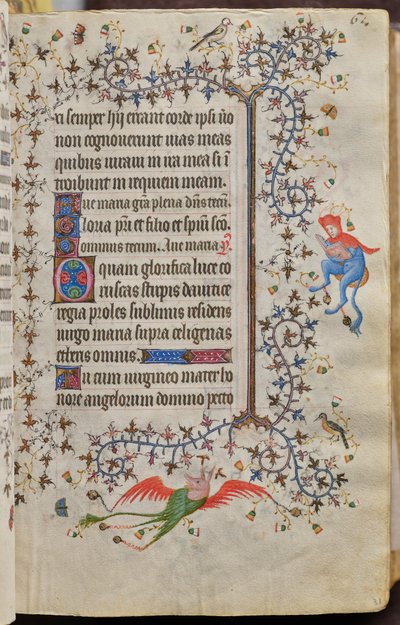 64
xi semper hij errant corde ipsi u̅o
non cognouerunt uias meas
quibus iuraui in ira mea si i̅
troibunt in requiem meam.
Aue maria gr̅a plena dn̅s tecu̅
Gloria pr̅i et filio et spiri̅ sco̅
Dominus tecum. Aue maria p̅
O quam glorifica luce co
ruscas stirpis dauitice
regia proles sublimis residens
uirgo maria supra celigenas
etheris omnis.
Tu cum uirgineo mater ho
nore angelorum domino pecto